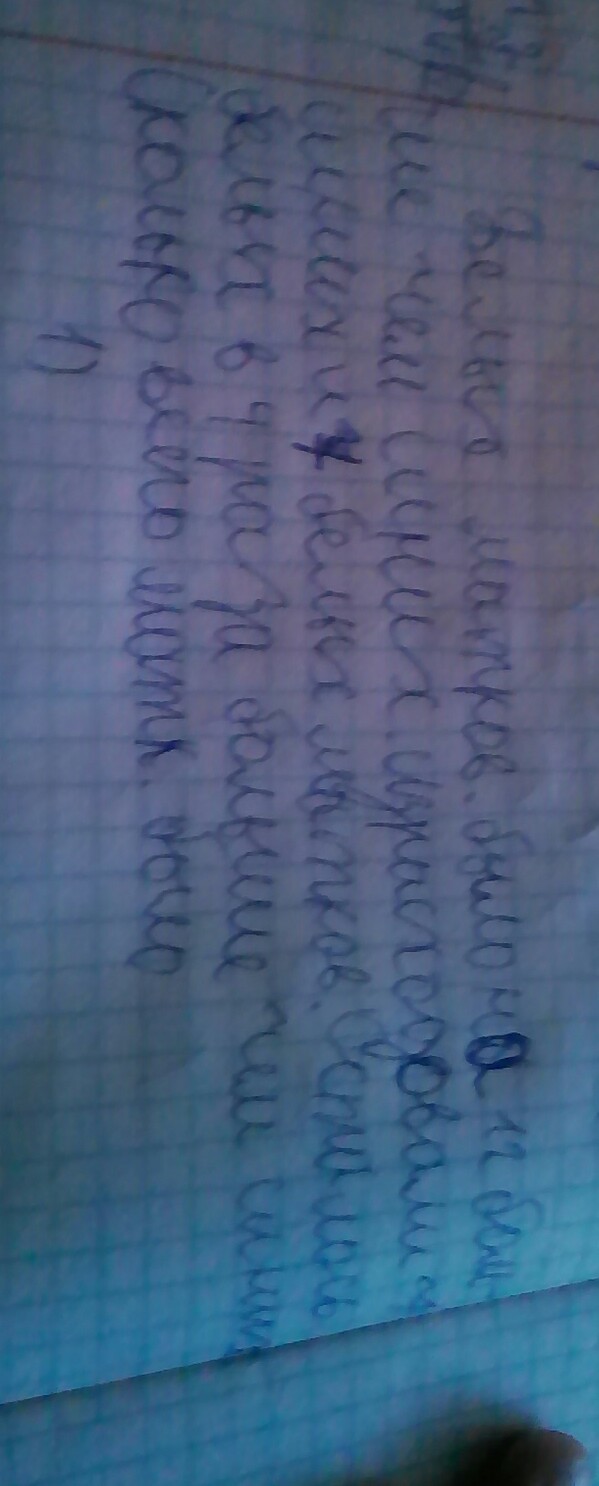 Белых матков. было на 12 боль
ше чем синих. израсходовали 4
синих и 4 белых матков. Осталось
белых в 4 раза больше чем синих
Сколько всего матк. было
1)